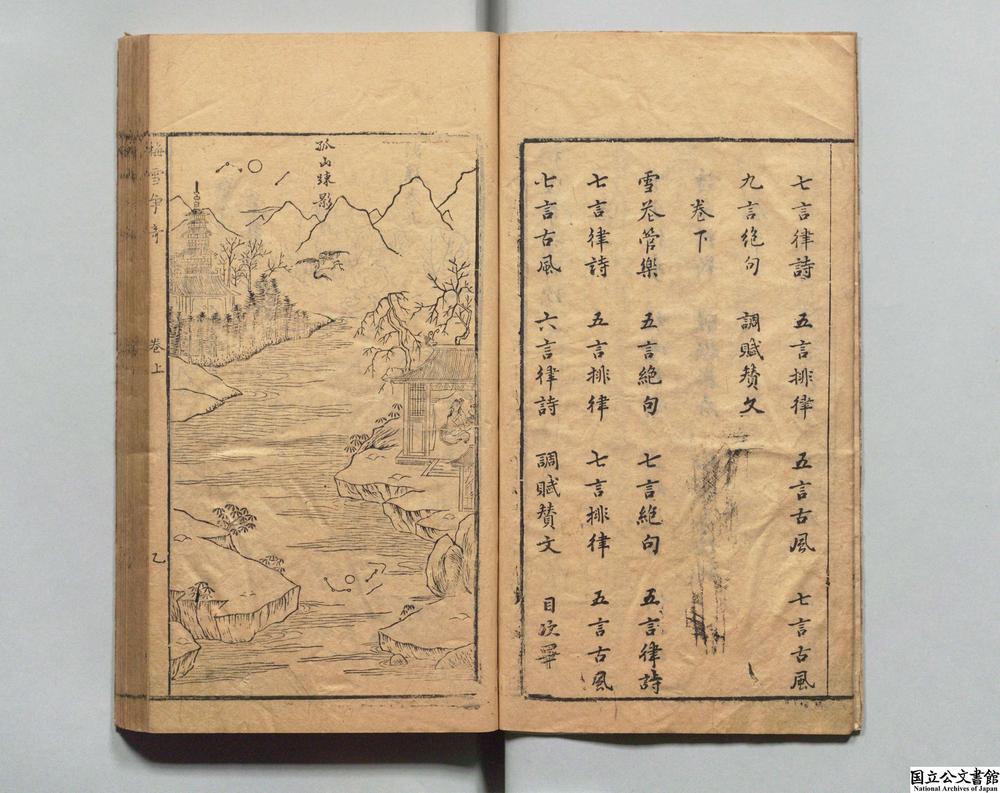 七言律詩 五言排律 五言古風 七言古風
九言絶句 調賦賛文
卷下
雪卷管樂 五言絶句 七言絶句 五言律詩
七言律詩 五言排律 七言排律 五言古風
七言古風 六言律詩 調賦賛文 目次畢
孤山踈影
梅雪争竒
卷上
乙
国立公文書館
National Archives of Japan